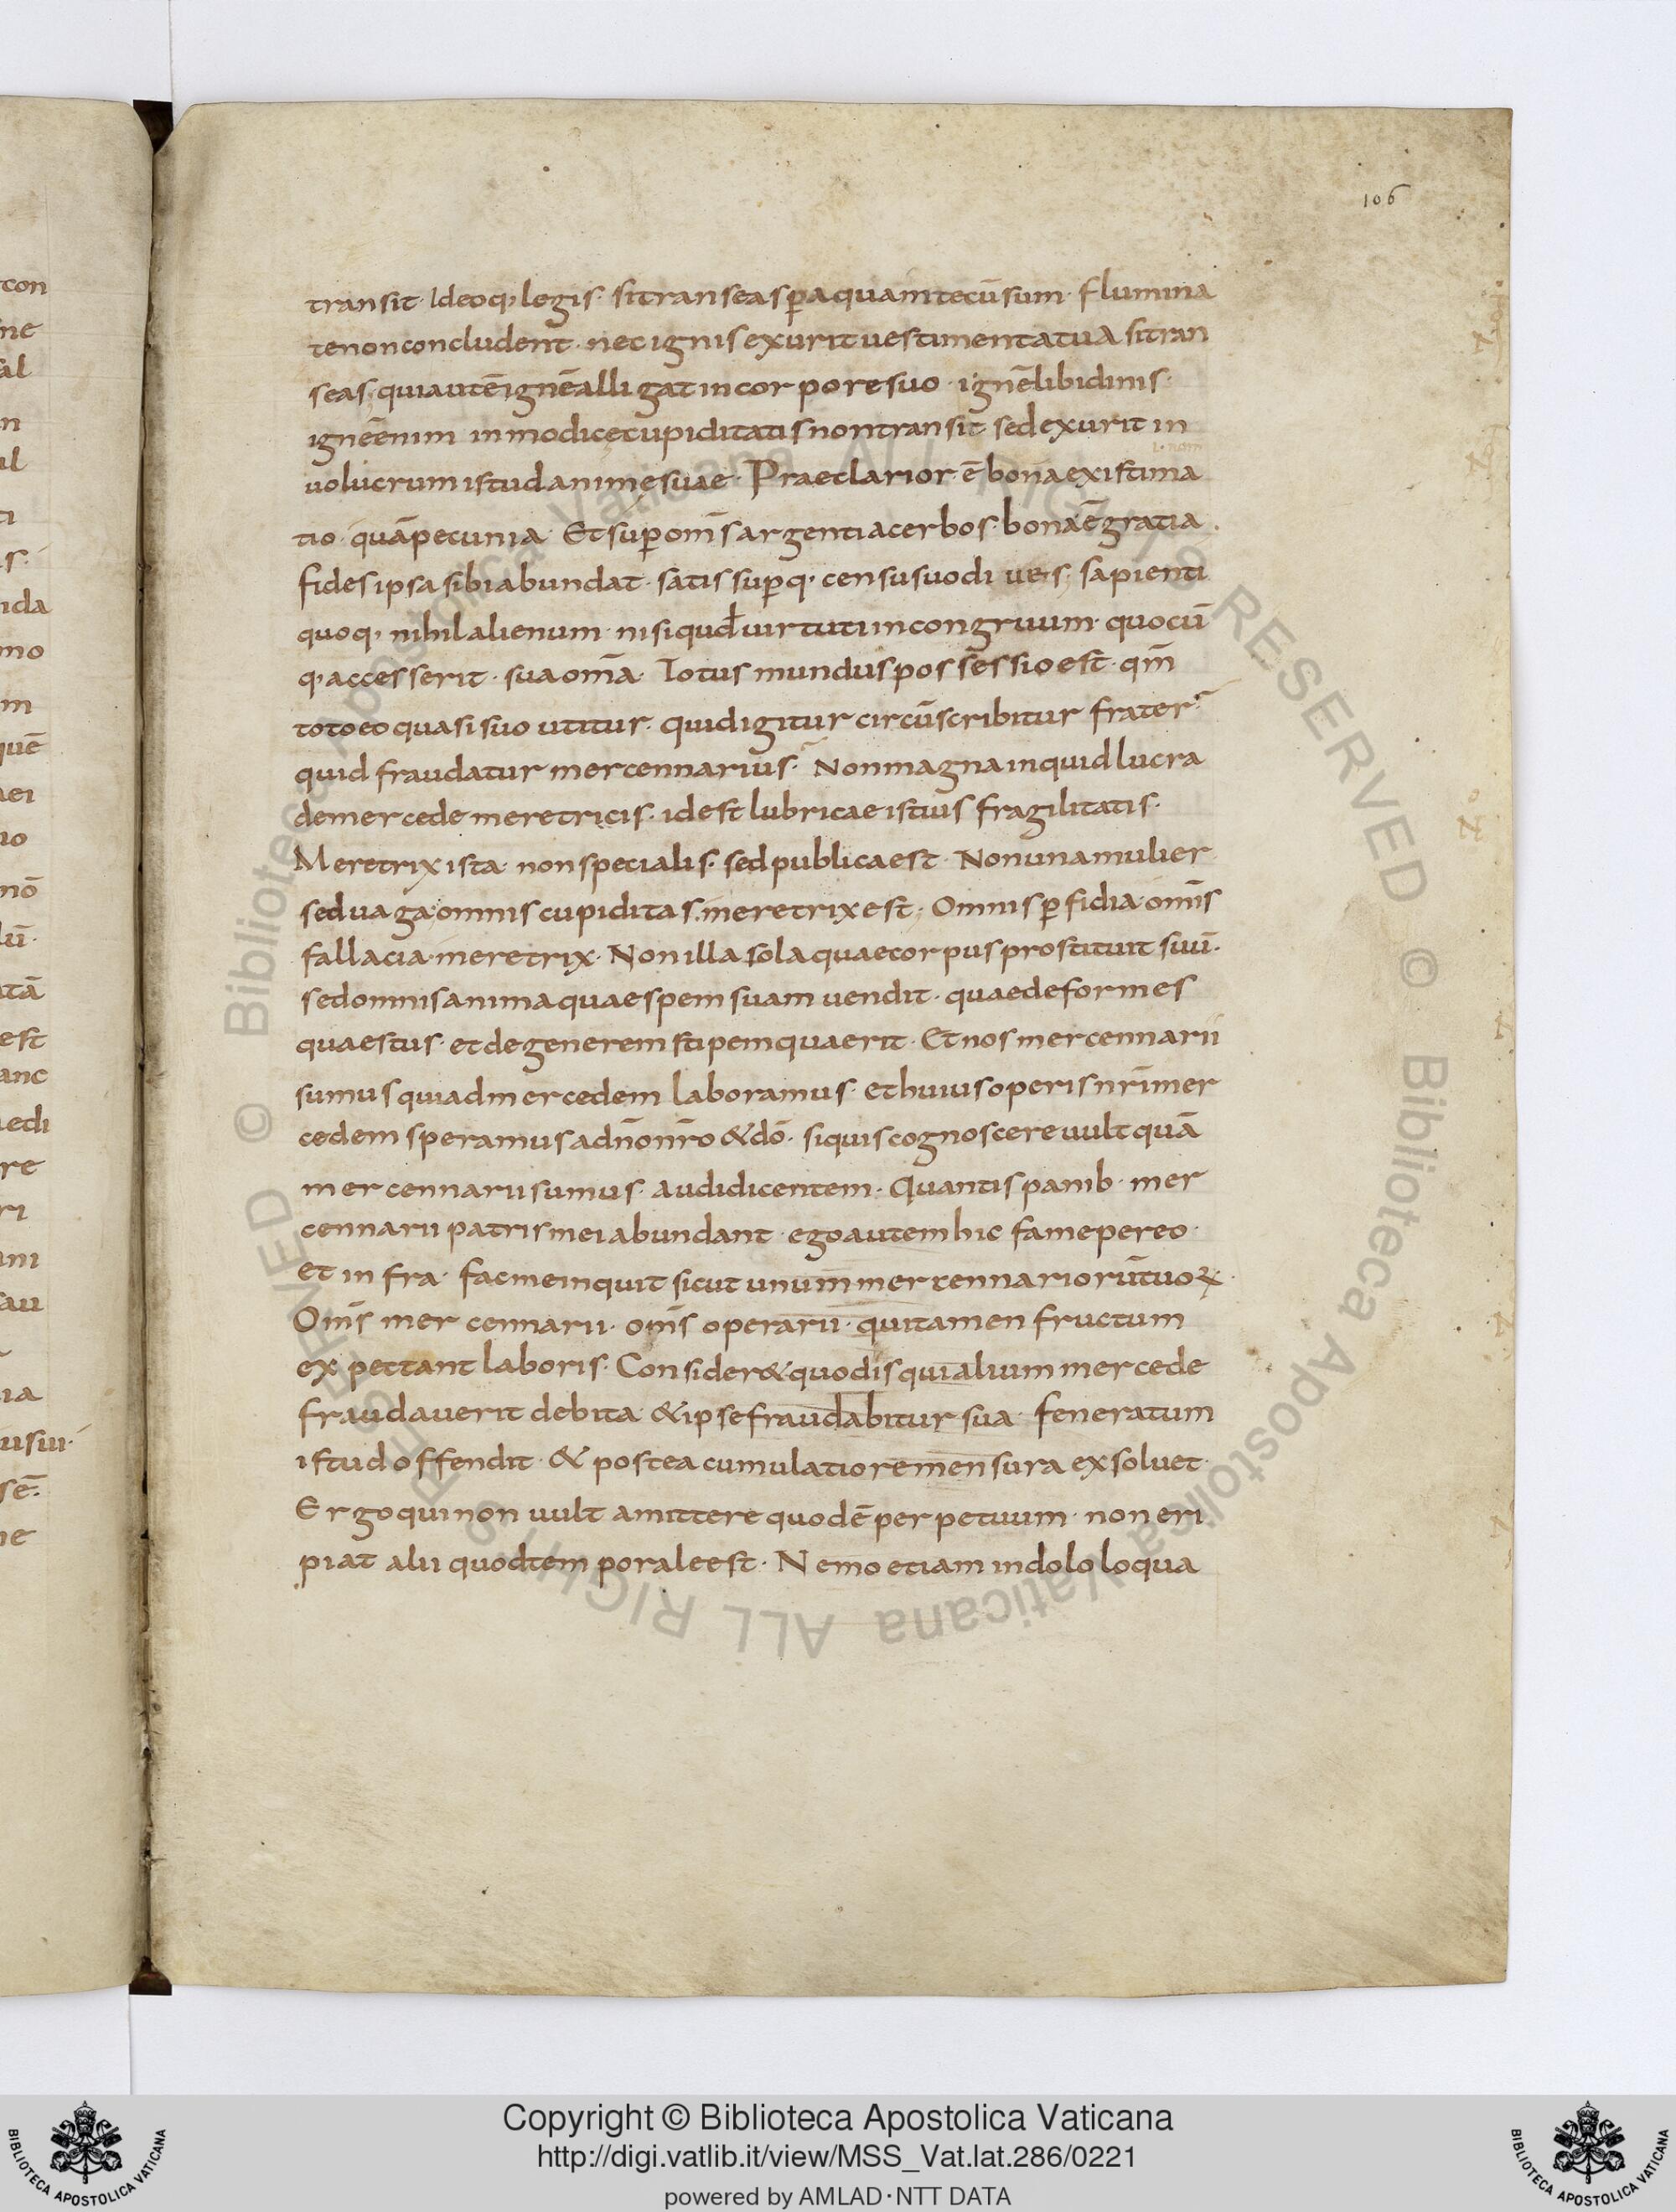 106
transit· Ideoq; legis· si transeas p̄ aquam tecū sum· flumina
te non concludent· nec ignis exurit uestimenta tua si tran
seas; qui autē ignē alligat in corpore suo· ignē libidinis·
ignē enim inmodicę cupiditatis non transit sed exurit in
l· nom
uolucrum istud animę suae· Praeclarior ē bona existima
tio· quā pecunia· Et sup om̄s argenti acerbos· bona ē gratia·
fides ipsa sibi abundat· satis supq; censu suo diues; sapienti
quoq; nihil alienum· nisi quđ uirtuti incongruum· quocū
q; accesserit· sua om̄a· Totus mundus possessio est· qm̄
toto eo quasi suo utitur· quid igitur circūscribitur frater?
quid fraudatur mercennarius? Non magna inquid lucra
de mercede meretricis· id est lubricae istius fragilitatis·
Meretrix ista non specialis· sed publica est· Non una mulier
sed uaga; omnis cupiditas· meretrix est; Omnis p̄fidia· om̄is
fallacia· meretrix· Non illa sola quae corpus prostituit suū·
sed omnis anima quae spem suam uendit· quae deformes
quaestus· et degenerem stipem quaerit· Et nos mercennarii
sumus qui ad mercedem laboramus· et huius operis nr̄i mer
cedem speramus a dn̄o nr̄o & dō· si quis cognoscere uult quā
mercennarii sumus· audi dicentem· Quantis panib· mer
cennarii patris mei abundant· ego autem hic fame pereo·
et infra· fac me inquit sicut unum mercennariorū tuoꝝ·
Om̄s mercennarii· om̄s operarii· qui tamen fructum
expectant laboris· Consider& quod is qui alium mercede
fraudauerit debita· & ipse fraudabitur sua· feneratum
istud offendit· & postea cumulatiore mensura exsoluet·
Ergo qui non uult amittere quod ē perpetuum· non eri
piat alii quod temporale est· Nemo etiam in dolo loqua
con
ne
al
n
al
ti
s·
ida
mo
m
quē
aei
io
nō
lū·
tā
est
anc
edi
re
ri
ani
au
ia
usiu·
sē·
ne
© Biblioteca Apostolica Vaticana ALL RIGHTS RESERVED © Biblioteca Apostolica Vaticana ALL RIGHTS RESERVED
Copyright © Biblioteca Apostolica Vaticana
http://digi.vatlib.it/view/MSS_Vat.lat.286/0221
powered by AMLAD·NTT DATA
BIBLIOTECA APOSTOLICA VATICANA
BIBLIOTECA APOSTOLICA VATICANA